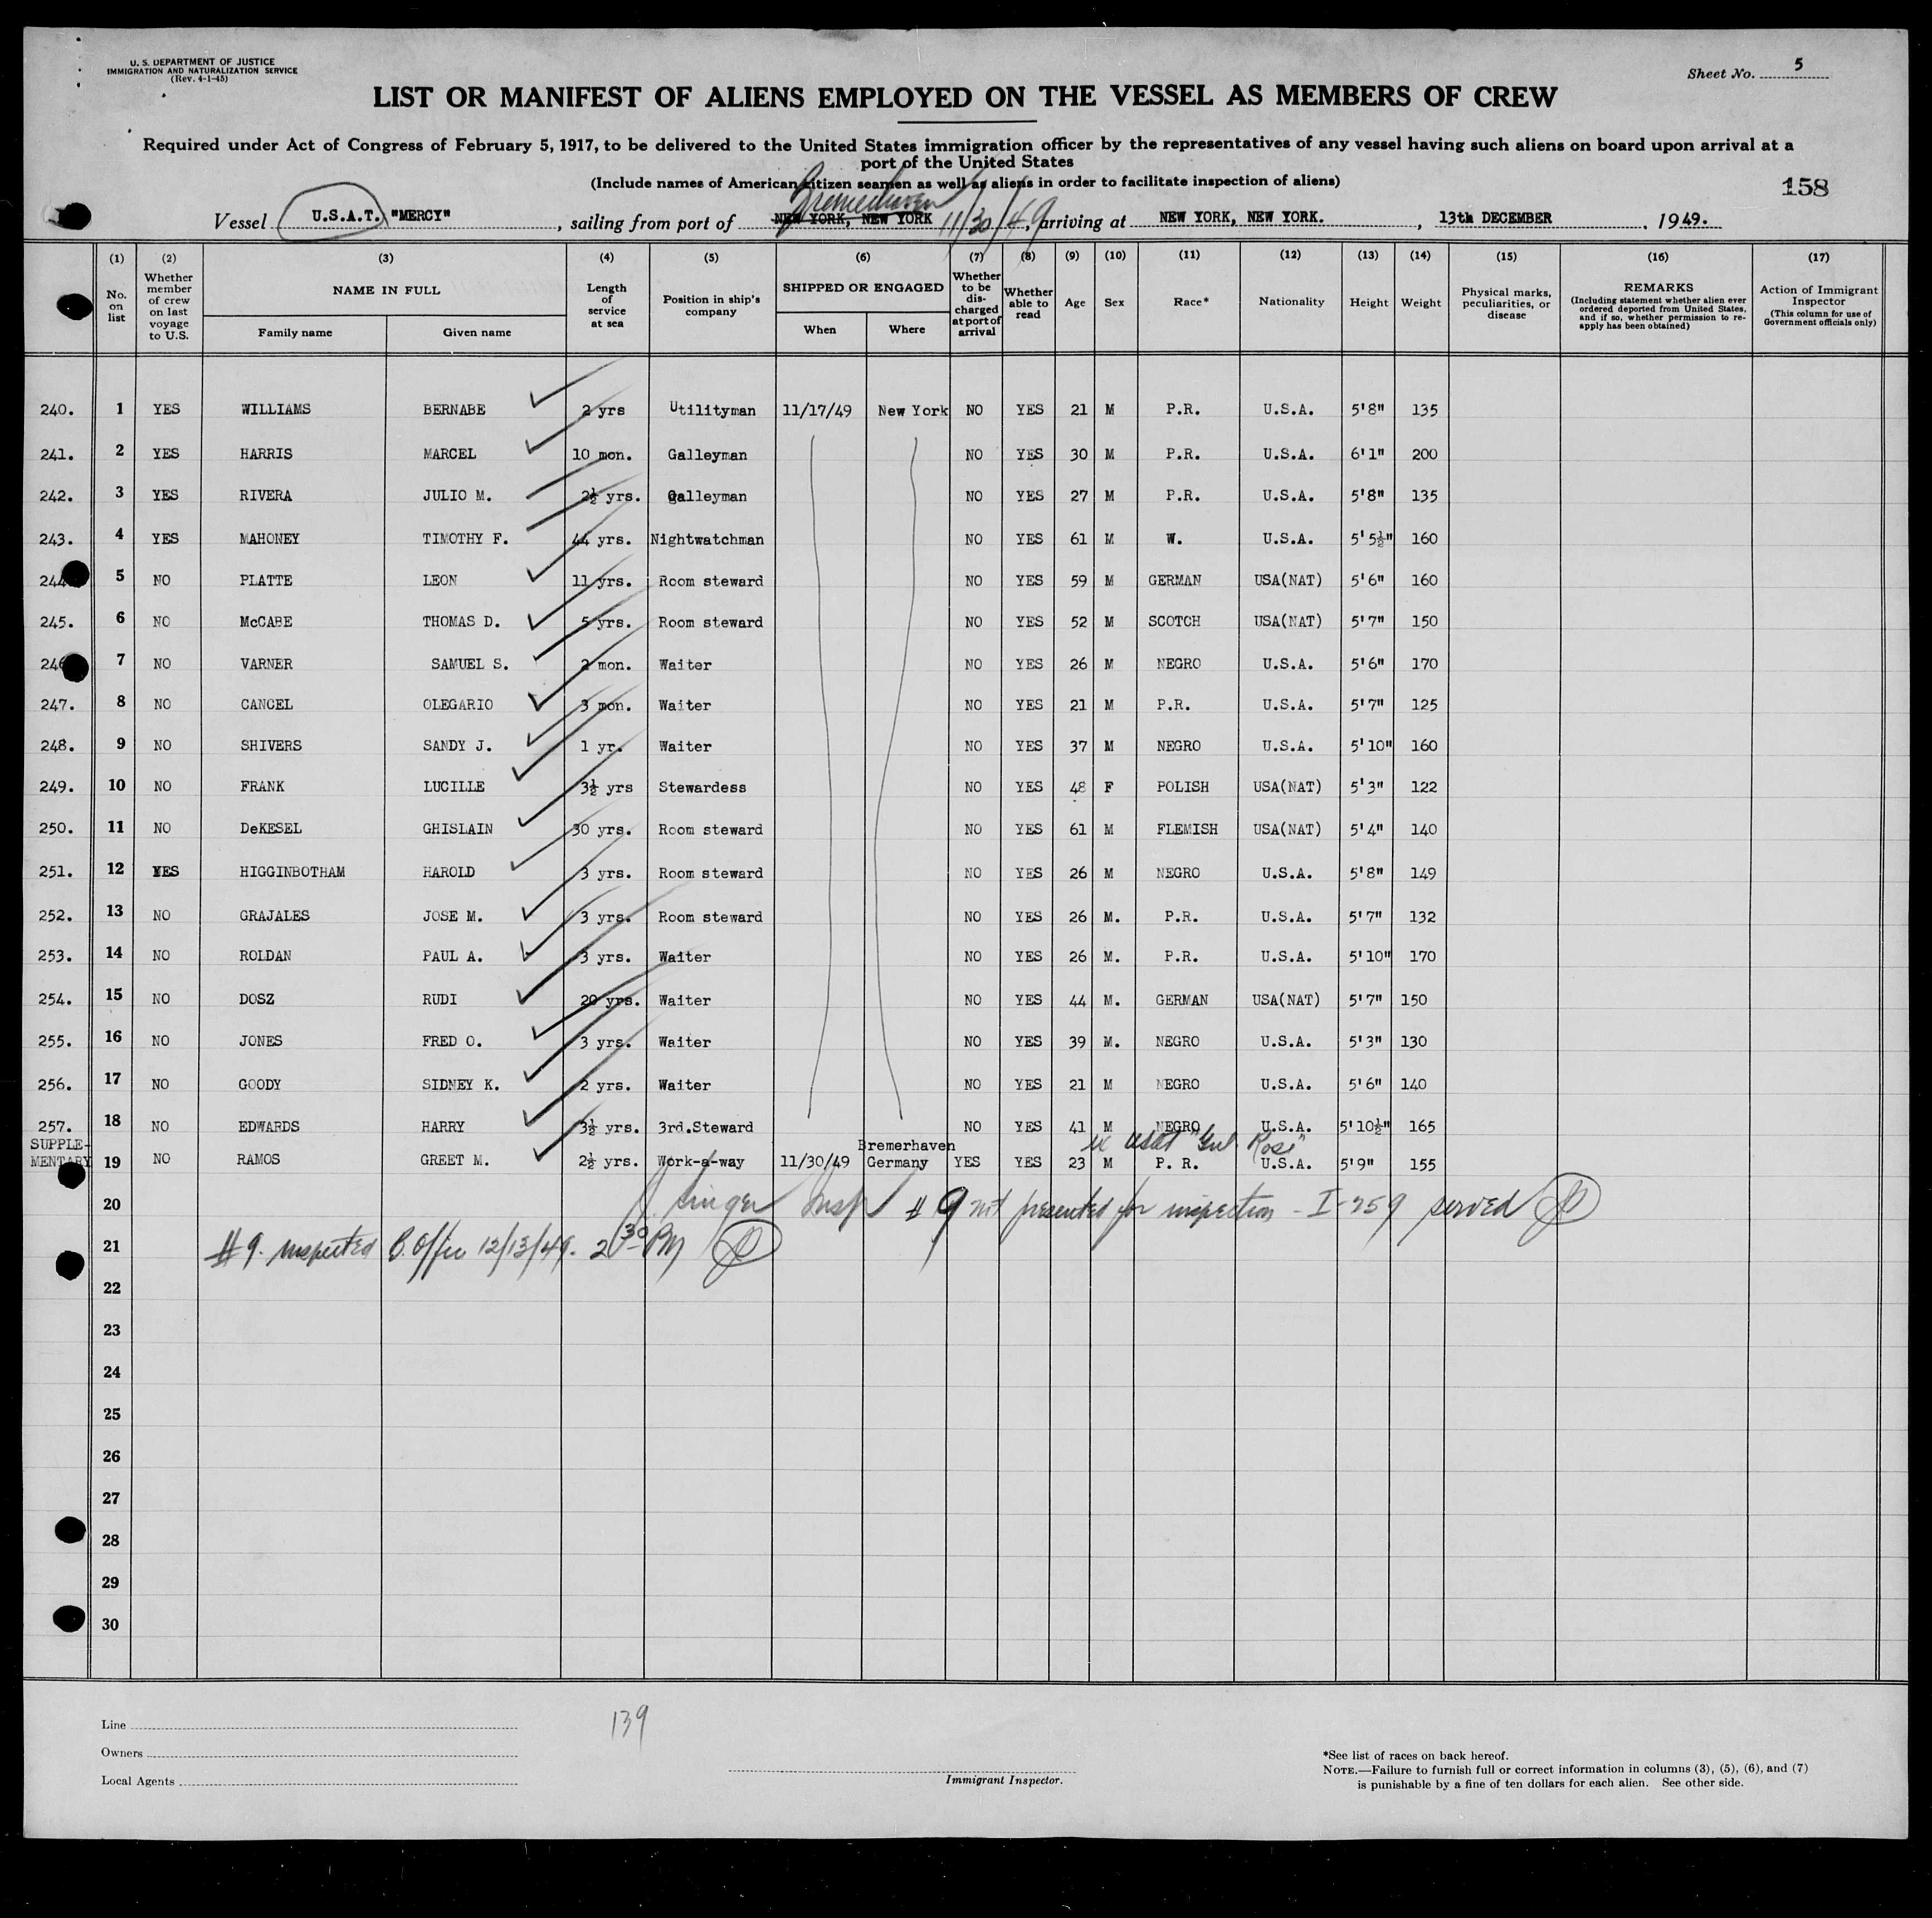 U. S. DEPARTMENT OF JUSTICE
IMMIGRATION AND NATURALIZATION SERVICE
(Rev. 4-1-45)
Sheet No. 5
LIST OR MANIFEST OF ALIENS EMPLOYED ON THE VESSEL AS MEMBERS OF CREW
Required under Act of Congress of February 5, 1917, to be delivered to the United States immigration officer by the representatives of any vessel having such aliens on board upon arrival at a
port of the United States
(Include names of American citizen seamen as well as aliens in order to facilitate inspection of aliens)
158
Bremerhaven
Vessel U.S.A.T. "MERCY", sailing from port of NEW YORK, NEW YORK 11/30/49, arriving at NEW YORK, NEW YORK., 13th DECEMBER, 1949.
(1) (2) (3) (4) (5) (6) (7) (8) (9) (10) (11) (12) (13) (14) (15) (16) (17)
No. on list
Whether member of crew on last voyage to U.S.
NAME IN FULL
Family name
Given name
Length of service at sea
Position in ship's company
SHIPPED OR ENGAGED
When
Where
Whether to be discharged at port of arrival
Whether able to read
Age
Sex
Race*
Nationality
Height
Weight
Physical marks, peculiarities, or disease
REMARKS
(Including statement whether alien ever ordered deported from United States, and if so, whether permission to reapply has been obtained)
Action of Immigrant Inspector
(This column for use of Government officials only)
240. 1 YES WILLIAMS BERNABE 2 yrs Utilityman 11/17/49 New York NO YES 21 M P.R. U.S.A. 5'8" 135
241. 2 YES HARRIS MARCEL 10 mon. Galleyman NO YES 30 M P.R. U.S.A. 6'1" 200
242. 3 YES RIVERA JULIO M. 2½ yrs. Galleyman NO YES 27 M P.R. U.S.A. 5'8" 135
243. 4 YES MAHONEY TIMOTHY F. 44 yrs. Nightwatchman NO YES 61 M W. U.S.A. 5'5½" 160
244 5 NO PLATTE LEON 11 yrs. Room steward NO YES 59 M GERMAN USA(NAT) 5'6" 160
245. 6 NO McCABE THOMAS D. 5 yrs. Room steward NO YES 52 M SCOTCH USA(NAT) 5'7" 150
246 7 NO VARNER SAMUEL S. 2 mon. Waiter NO YES 26 M NEGRO U.S.A. 5'6" 170
247. 8 NO CANCEL OLEGARIO 3 mon. Waiter NO YES 21 M P.R. U.S.A. 5'7" 125
248. 9 NO SHIVERS SANDY J. 1 yr. Waiter NO YES 37 M NEGRO U.S.A. 5'10" 160
249. 10 NO FRANK LUCILLE 3½ yrs Stewardess NO YES 48 F POLISH USA(NAT) 5'3" 122
250. 11 NO DeKESEL GHISLAIN 30 yrs. Room steward NO YES 61 M FLEMISH USA(NAT) 5'4" 140
251. 12 YES HIGGINBOTHAM HAROLD 3 yrs. Room steward NO YES 26 M NEGRO U.S.A. 5'8" 149
252. 13 NO GRAJALES JOSE M. 3 yrs. Room steward NO YES 26 M. P.R. U.S.A. 5'7" 132
253. 14 NO ROLDAN PAUL A. 3 yrs. Waiter NO YES 26 M. P.R. U.S.A. 5'10" 170
254. 15 NO DOSZ RUDI 20 yrs. Waiter NO YES 44 M. GERMAN USA(NAT) 5'7" 150
255. 16 NO JONES FRED O. 3 yrs. Waiter NO YES 39 M. NEGRO U.S.A. 5'3" 130
256. 17 NO GOODY SIDNEY K. 2 yrs. Waiter NO YES 21 M NEGRO U.S.A. 5'6" 140
257. 18 NO EDWARDS HARRY 3½ yrs. 3rd.Steward NO YES 41 M NEGRO U.S.A. 5'10½" 165
ex USAT
SUPPLE-
MENTARY 19 NO RAMOS GREET M. 2½ yrs. Work-a-way 11/30/49 Bremerhaven Germany YES YES 23 M P. R. U.S.A. 5'9" 155
20 J. Singer Insp #9 not presented for inspection - I-259 served
21 #9. inspected B. Office 12/13/49. 2 30 PM
22
23
24
25
26
27
28
29
30
Line
139
Owners
Local Agents
Immigrant Inspector.
*See list of races on back hereof.
NOTE.—Failure to furnish full or correct information in columns (3), (5), (6), and (7)
is punishable by a fine of ten dollars for each alien. See other side.